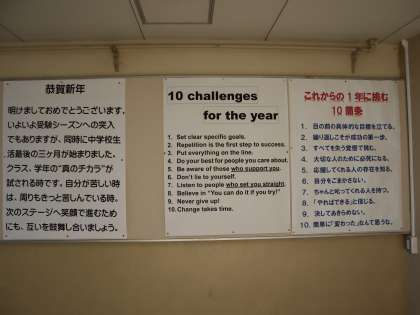 恭賀新年
明けましておめでとうございます。
いよいよ受験シーズンへの突入
でもありますが、同時に中学校生
活最後の三ヶ月が始まりました。
クラス、学年の“真のチカラ”が
試される時です。自分が苦しい時
は、周りもきっと苦しんでいる時。
次のステージへ笑顔で進むため
にも、互いを鼓舞し合いましょう。
10 challenges
for the year
1. Set clear specific goals.
2. Repetition is the first step to success.
3. Put everything on the line.
4. Do your best for people you care about.
5. Be aware of those who support you.
6. Don't lie to yourself.
7. Listen to people who set you straight.
8. Believe in "You can do it if you try!"
9. Never give up!
10. Change takes time.
これからの1年に挑む
10箇条
1. 目の前の具体的な目標を立てる。
2. 繰り返しこそが成功の第一歩。
3. すべてを失う覚悟で挑む。
4. 大切な人のために必死になる。
5. 応援してくれる人の存在を知る。
6. 自分をごまかさない。
7. ちゃんと叱ってくれる人を持つ。
8. 「やればできる」と信じる。
9. 決してあきらめない。
10. 簡単に“変わった”なんて思うな。